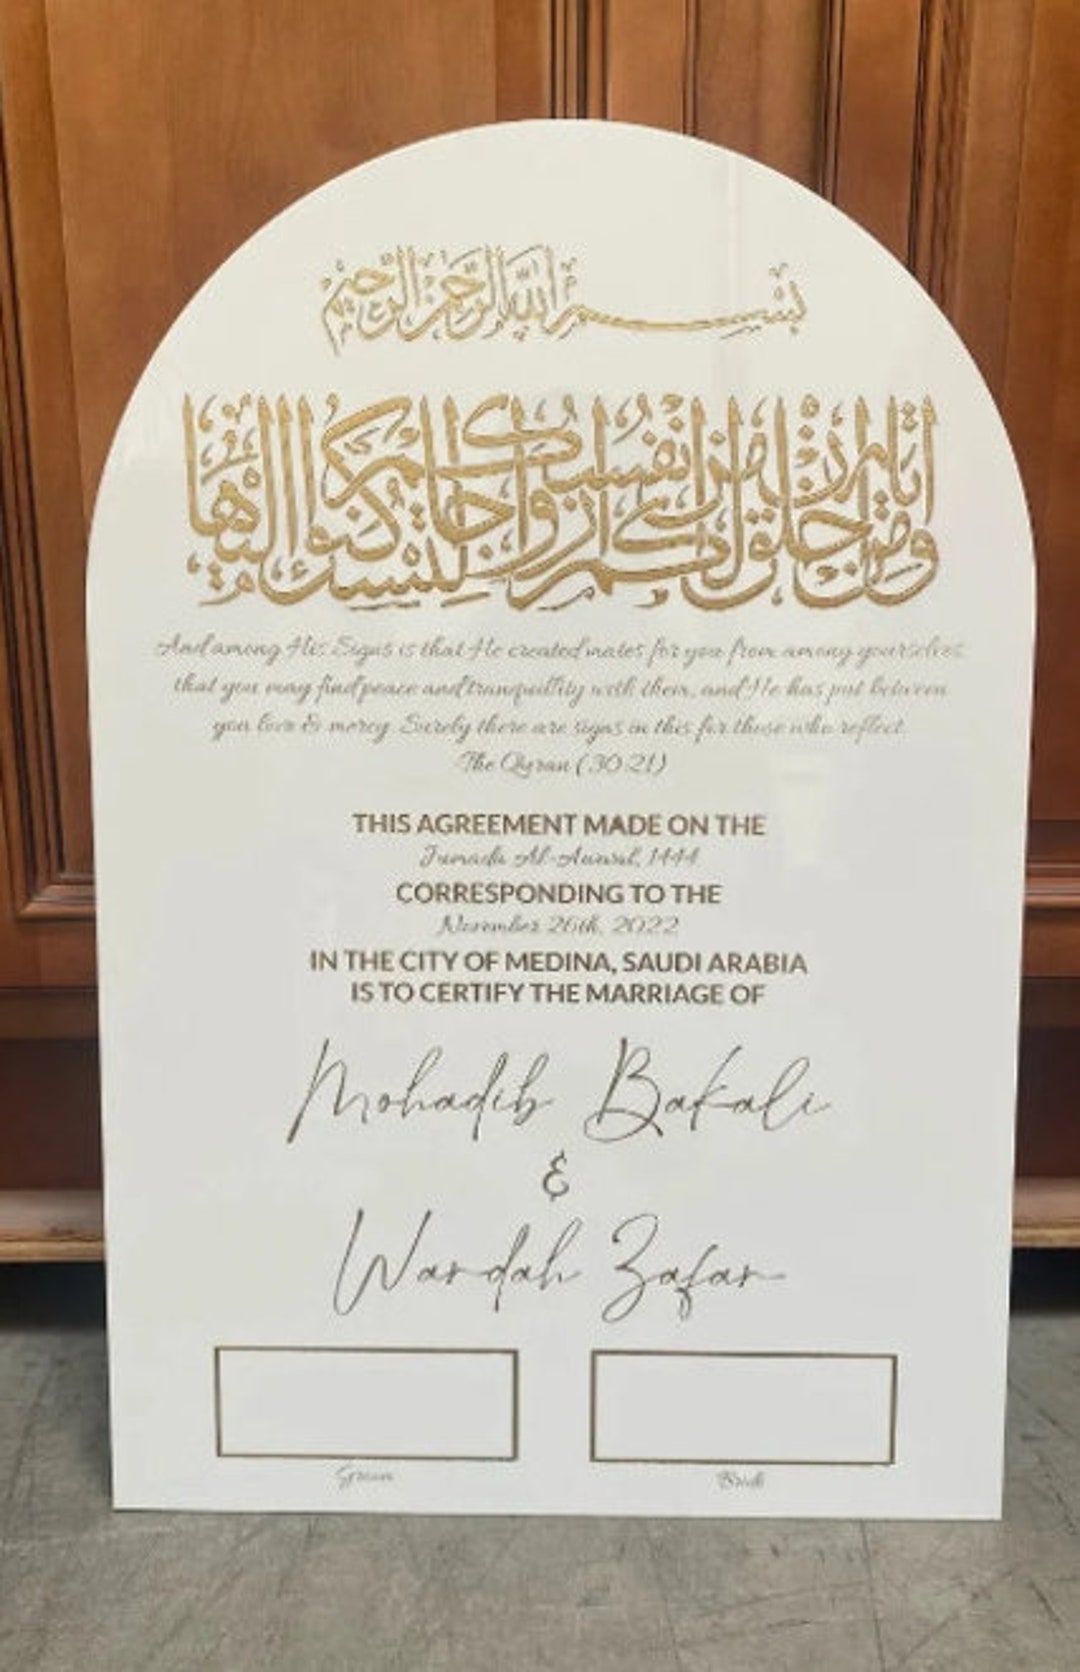 بسم الله الرحمن الرحيم
ومن آياته أن خلق لكم من أنفسكم أزواجا لتسكنوا إليها
And among His Signs is that He created mates for you from among yourselves
that you may find peace and tranquillity with them, and He has put between
you love & mercy. Surely there are signs in this for those who reflect.
The Quran (30:21)
THIS AGREEMENT MADE ON THE
Jumada Al-Awwal, 1444
CORRESPONDING TO THE
November 26th, 2022
IN THE CITY OF MEDINA, SAUDI ARABIA
IS TO CERTIFY THE MARRIAGE OF
Mohadib Bakali
&
Wardah Zafar
Groom Bride